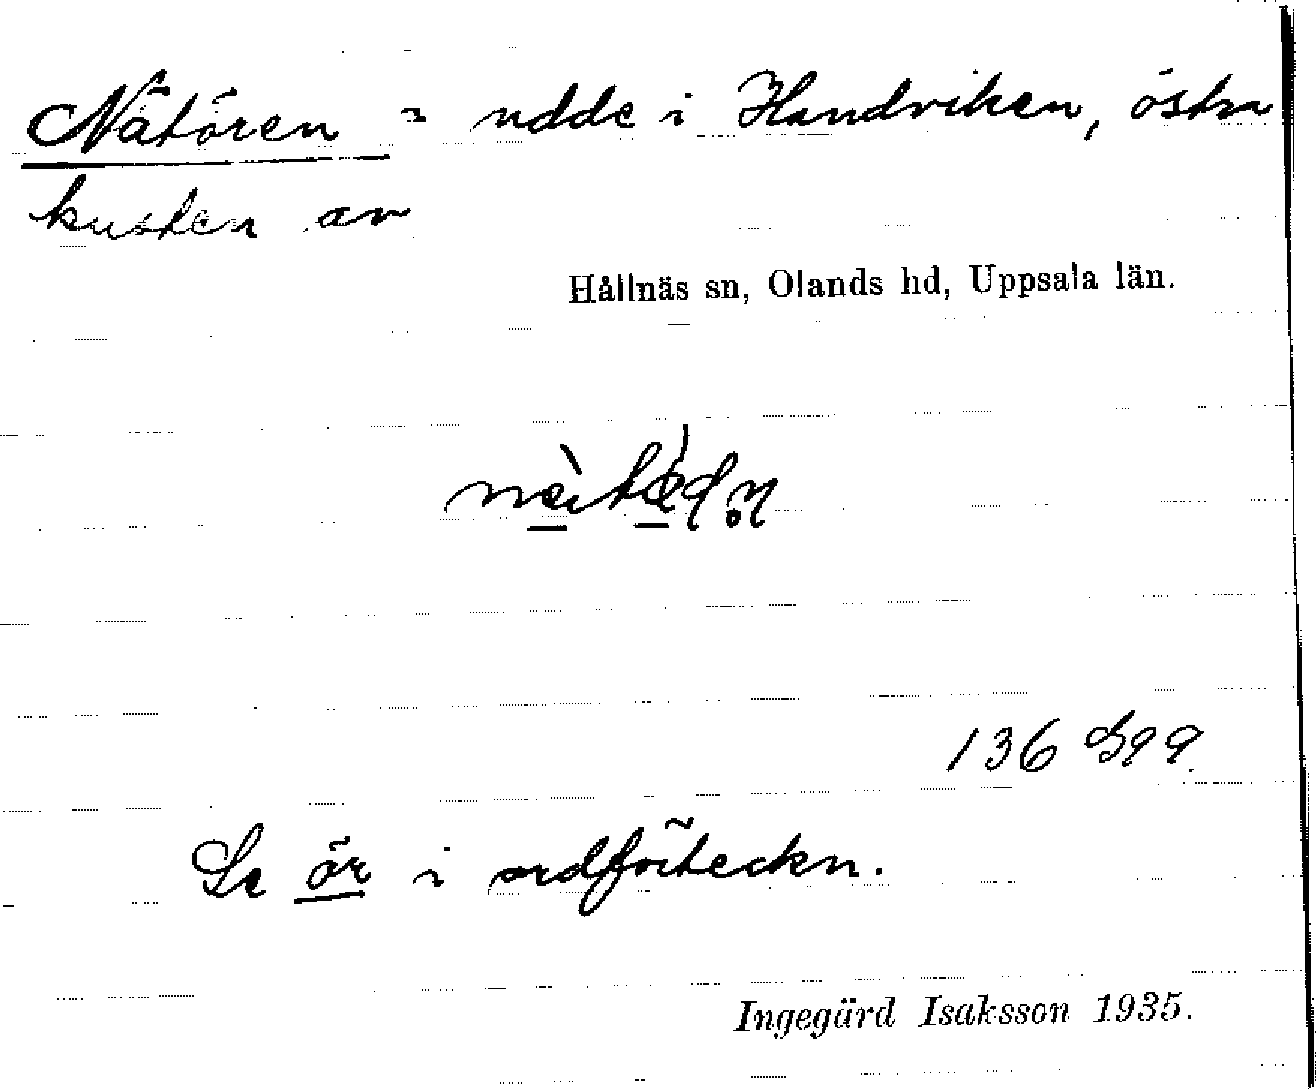 Nätören = udde i Handviken, östra
kusten av
Hållnäs sn, Olands hd, Uppsala län.
136
Se ör i ordförteckn.
Ingegärd Isaksson 1935.